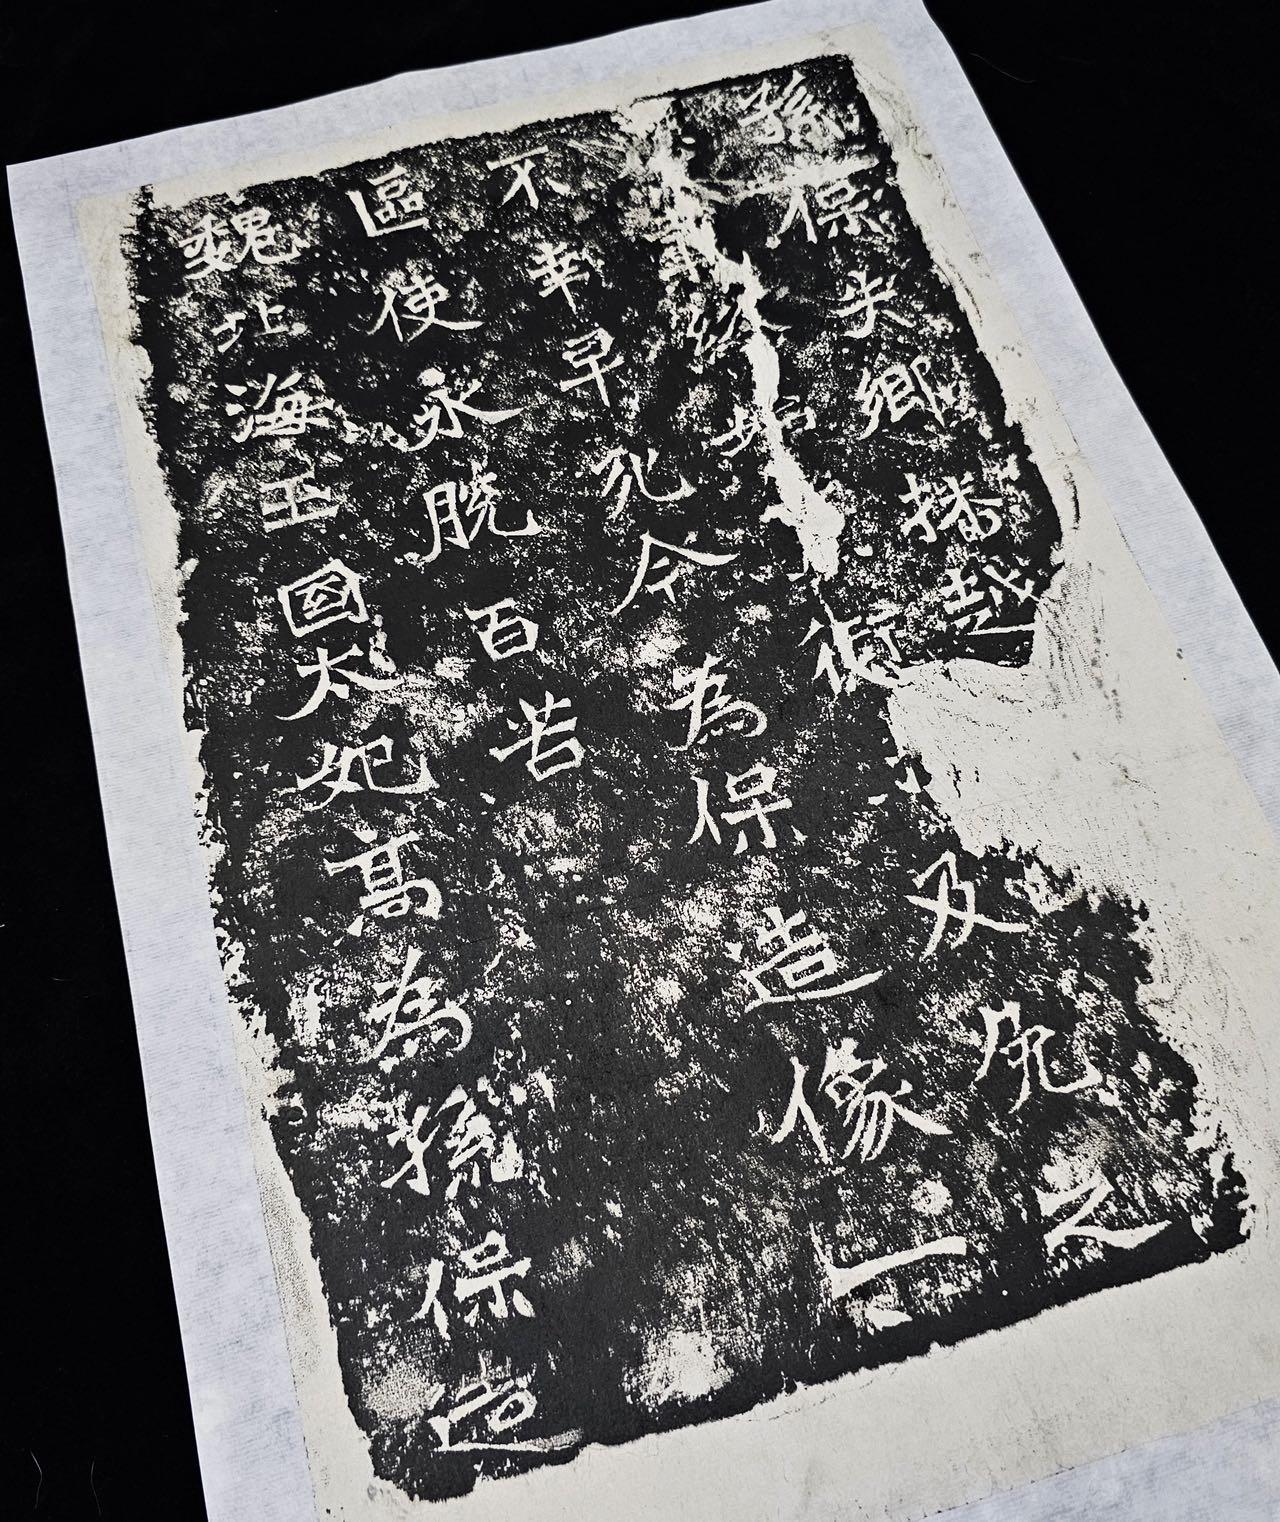 孫保失鄉播越
終始銜及之
不幸早死今為保造像一
區使永脫百苦
魏北海王國太妃高為孫保造